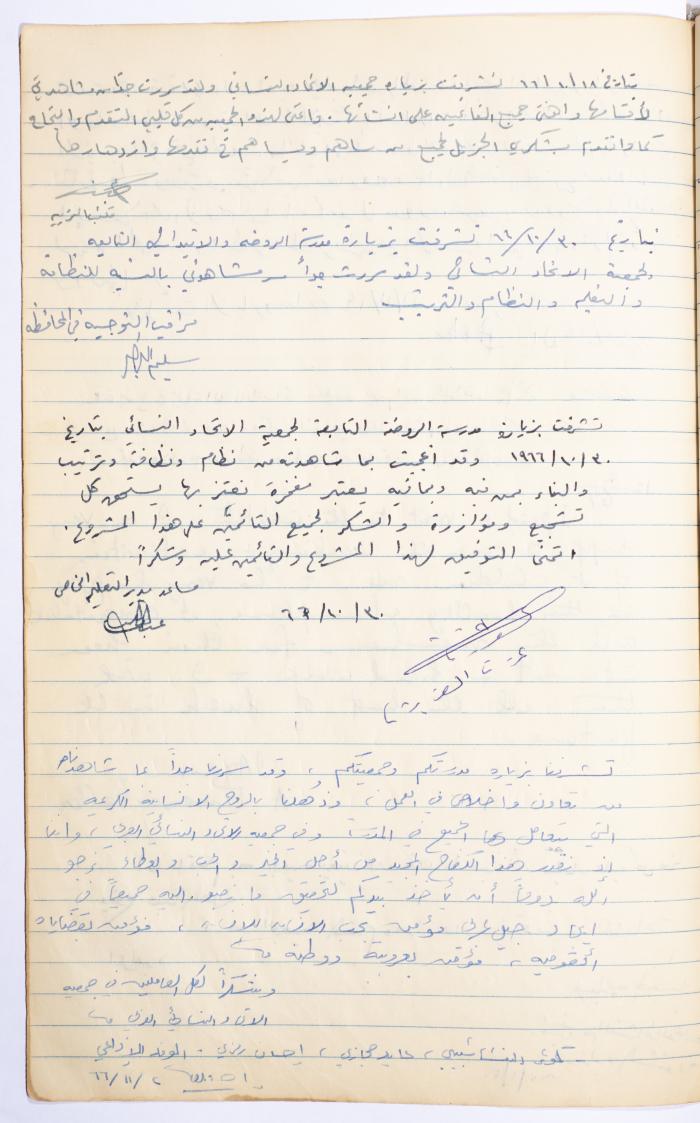 بتاريخ ١٨/١٠/٦٦ تشرفت بزيارة جمعية الاتحاد النسائي ولقد سررت جداً من مشاهدتي
لأقسامها واهنئ جميع القائمين على انشائها. واتمنى لهذه الجمعية من كل قلبي التقدم والنجاح
كما واتقدم بشكري الجزيل لجميع من ساهم ويساهم في تقدمها وازدهارها
بتاريخ ٣٠/١٠/٦٦ تشرفت بزيارة مدرسة الروضة والابتدائي التابعة
لجمعية الاتحاد النسائي ولقد سررت جداً من مشاهدتي بالنسبة للنظافة
والتعليم والنظام والترتيب.
مراقب التوجيه في المحافظة
سليم
تشرفت بزيارة مدرسة الروضة التابعة لجمعية الاتحاد النسائي بتاريخ
٣٠/١٠/١٩٦٦ وقد اعجبت بما شاهدته من نظام ونظافة وترتيب
والبناء بمن فيه وبما فيه يعتبر مفخرة نعتز بها يستحق كل
تشجيع ومؤازرة والشكر لجميع القائمين على هذا المشروع.
اتمنى التوفيق لهذا المشروع والقائمين عليه وشكراً
مساعد مدير التعليم الخاص
٣٠/١٠/٦٦
عزت
تشرفنا بزيارة مدرستكم وجمعيتكم، وقد سررنا جداً بما شاهدناه
من تعاون واخلاص في العمل، وذهلنا بالروح الانسانية الكريمة
التي يتعامل بها الجميع في المدرسة وفي جمعية الاتحاد النسائي العربي، واننا
اذ نقدر هذا الكفاح المجيد من أجل الخير والحب والعطاء نرجو
الله دوماً أن يأخذ بيدكم لتحقيق ما نصبو اليه جميعاً في
ايجاد جيل عربي مؤمن بحب الانسان للانسان، مؤمن بقضاياه
القومية، مؤمن بعروبته ووطنه
وشكراً لكل العاملين في جمعية
الاتحاد النسائي العربي
كوثر النشاشيبي، عايد حجازي، احسان رمزي - الوفد الإذاعي
٢/١١/٦٦